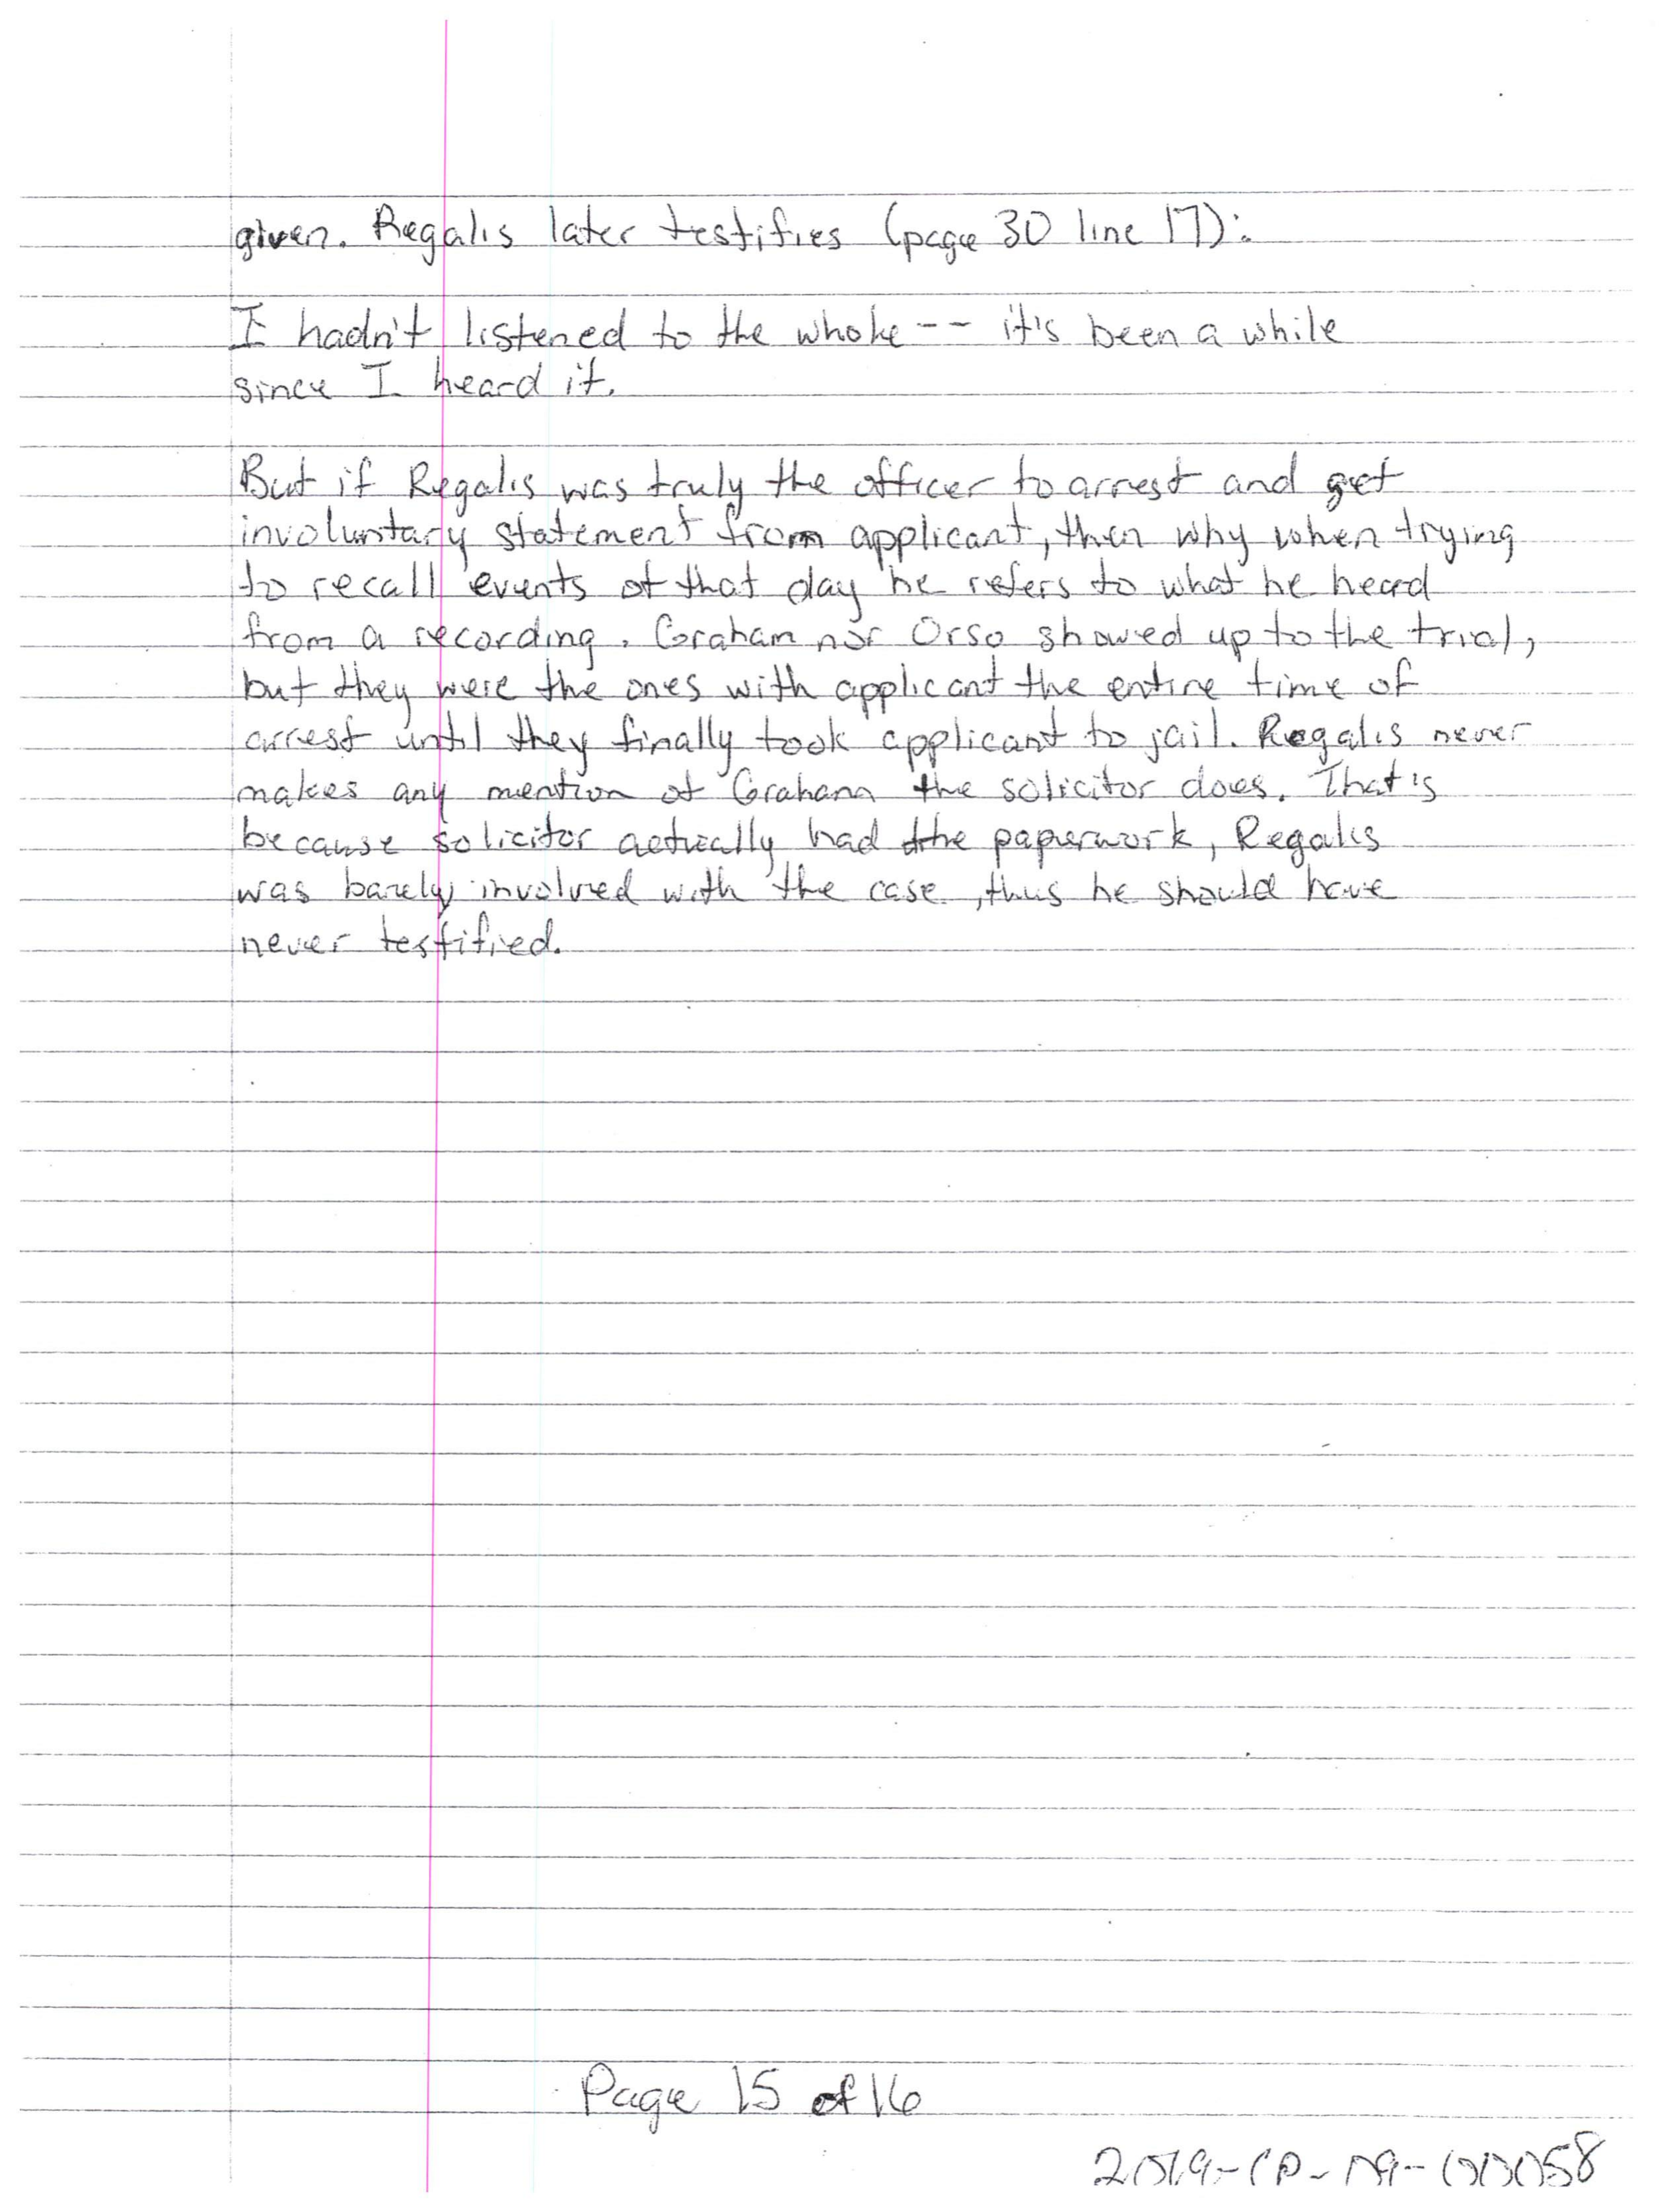 given. Regalis later testifies (page 30 line 17):
I hadn't listened to the whole -- it's been a while
since I heard it.
But if Regalis was truly the officer to arrest and get
involuntary statement from applicant, then why when trying
to recall events of that day he refers to what he heard
from a recording. Graham nor Orso showed up to the trial,
but they were the ones with applicant the entire time of
arrest until they finally took applicant to jail. Regalis never
makes any mention of Graham the solicitor does. That's
because solicitor actually had the paperwork, Regalis
was barely involved with the case, thus he should have
never testified.
Page 15 of 16
2019-CP-09-00058